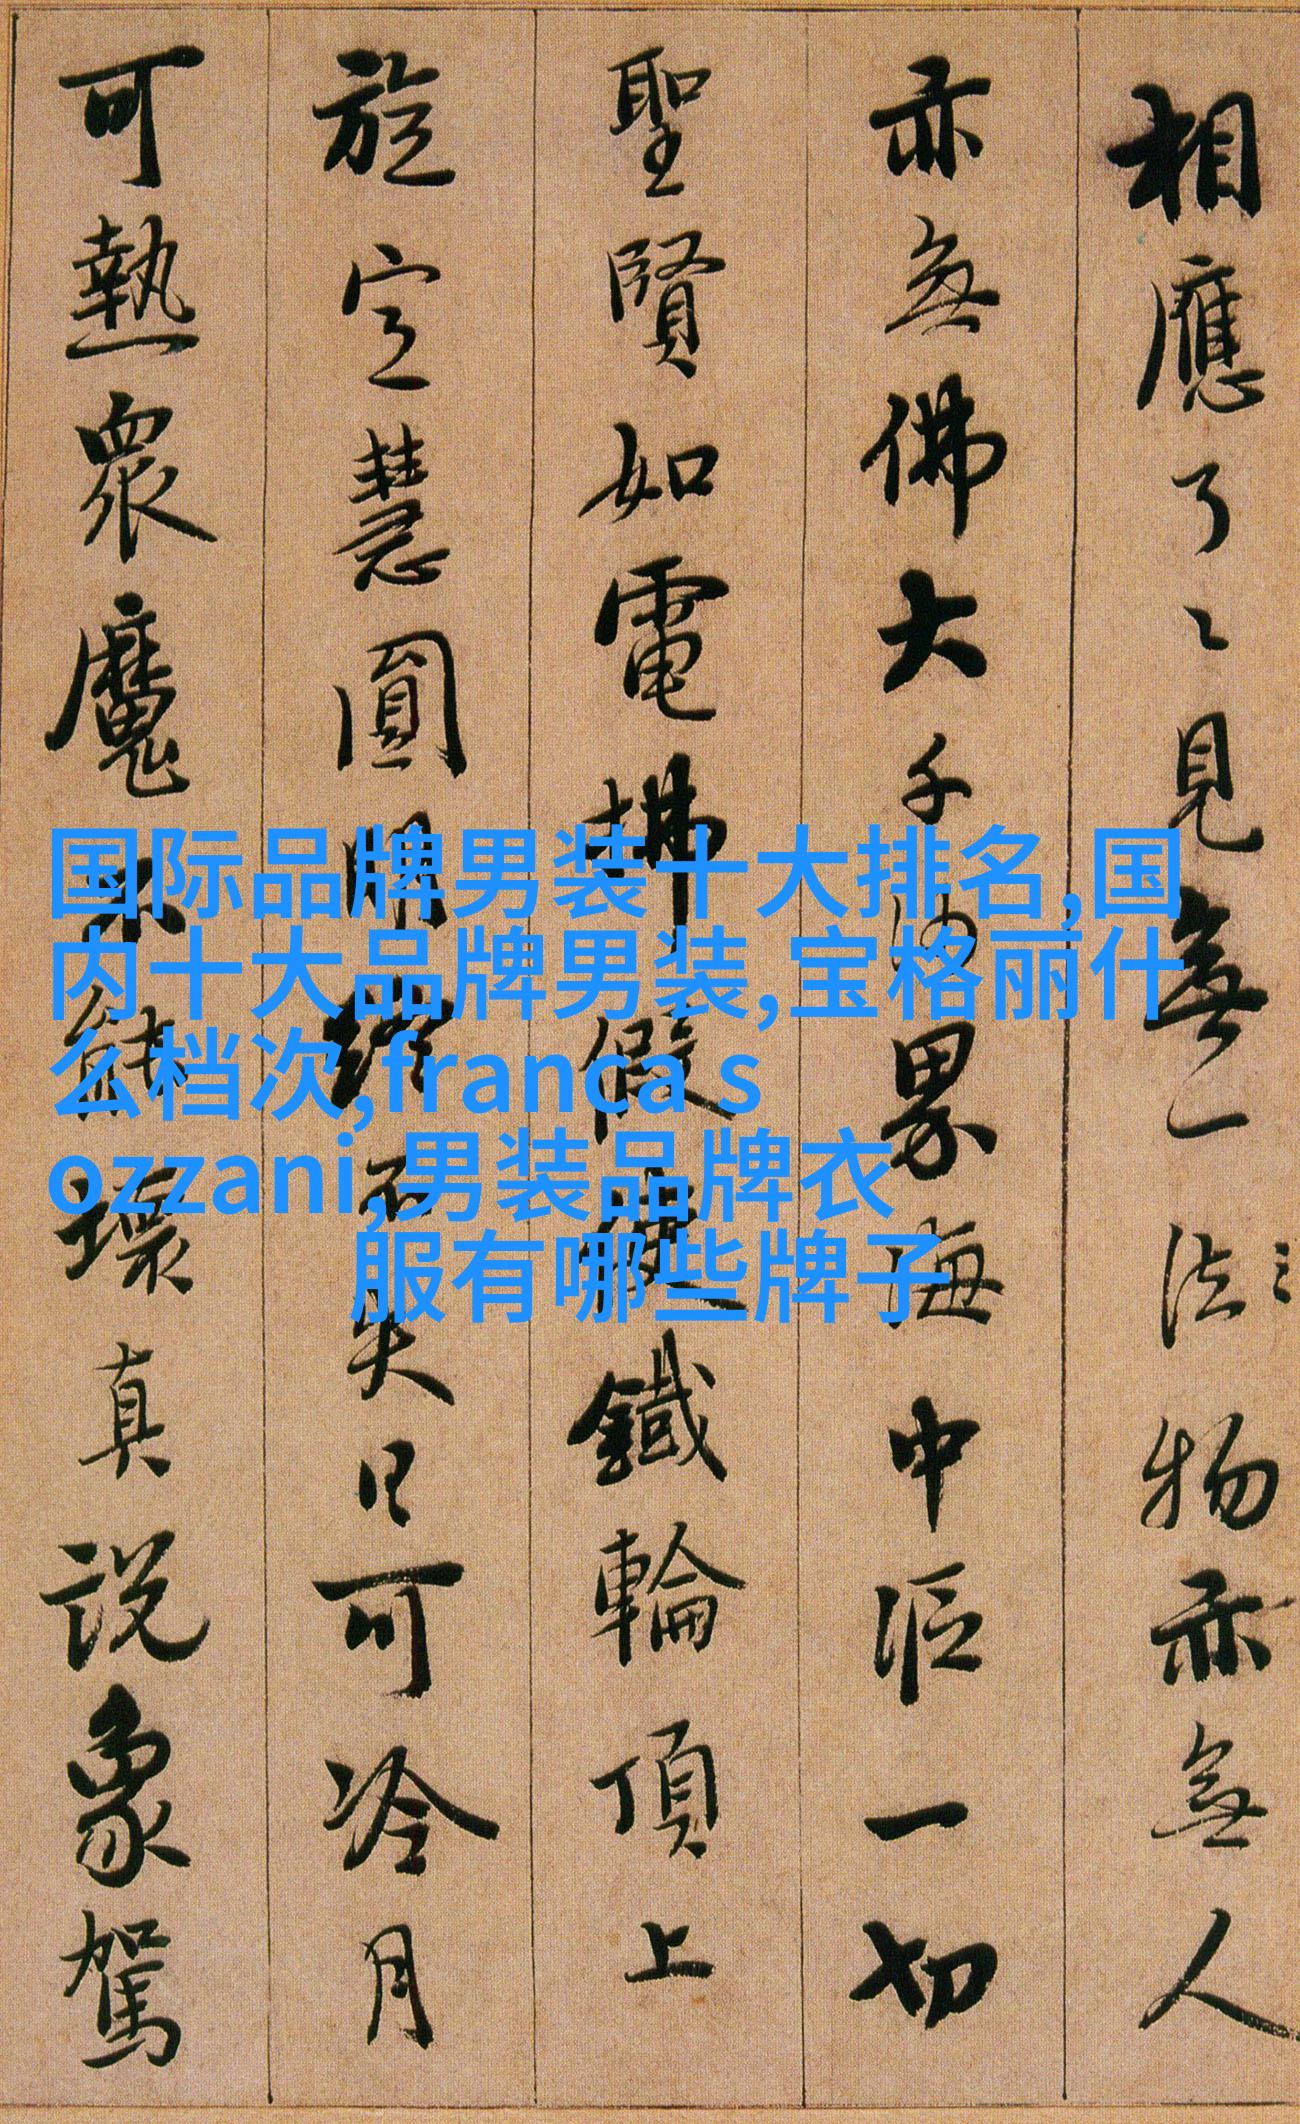 相應了〻見無一法物亦無人
亦無佛大千沙界海中漚一切
聖賢如電拂假使鐵輪頂上
旋定慧圓明終不失日可冷月
可熱眾魔不能壞真說象駕
国际品牌男装十大排名,国
内十大品牌男装,宝格丽什
么档次,franca s
ozzani,男装品牌衣
服有哪些牌子